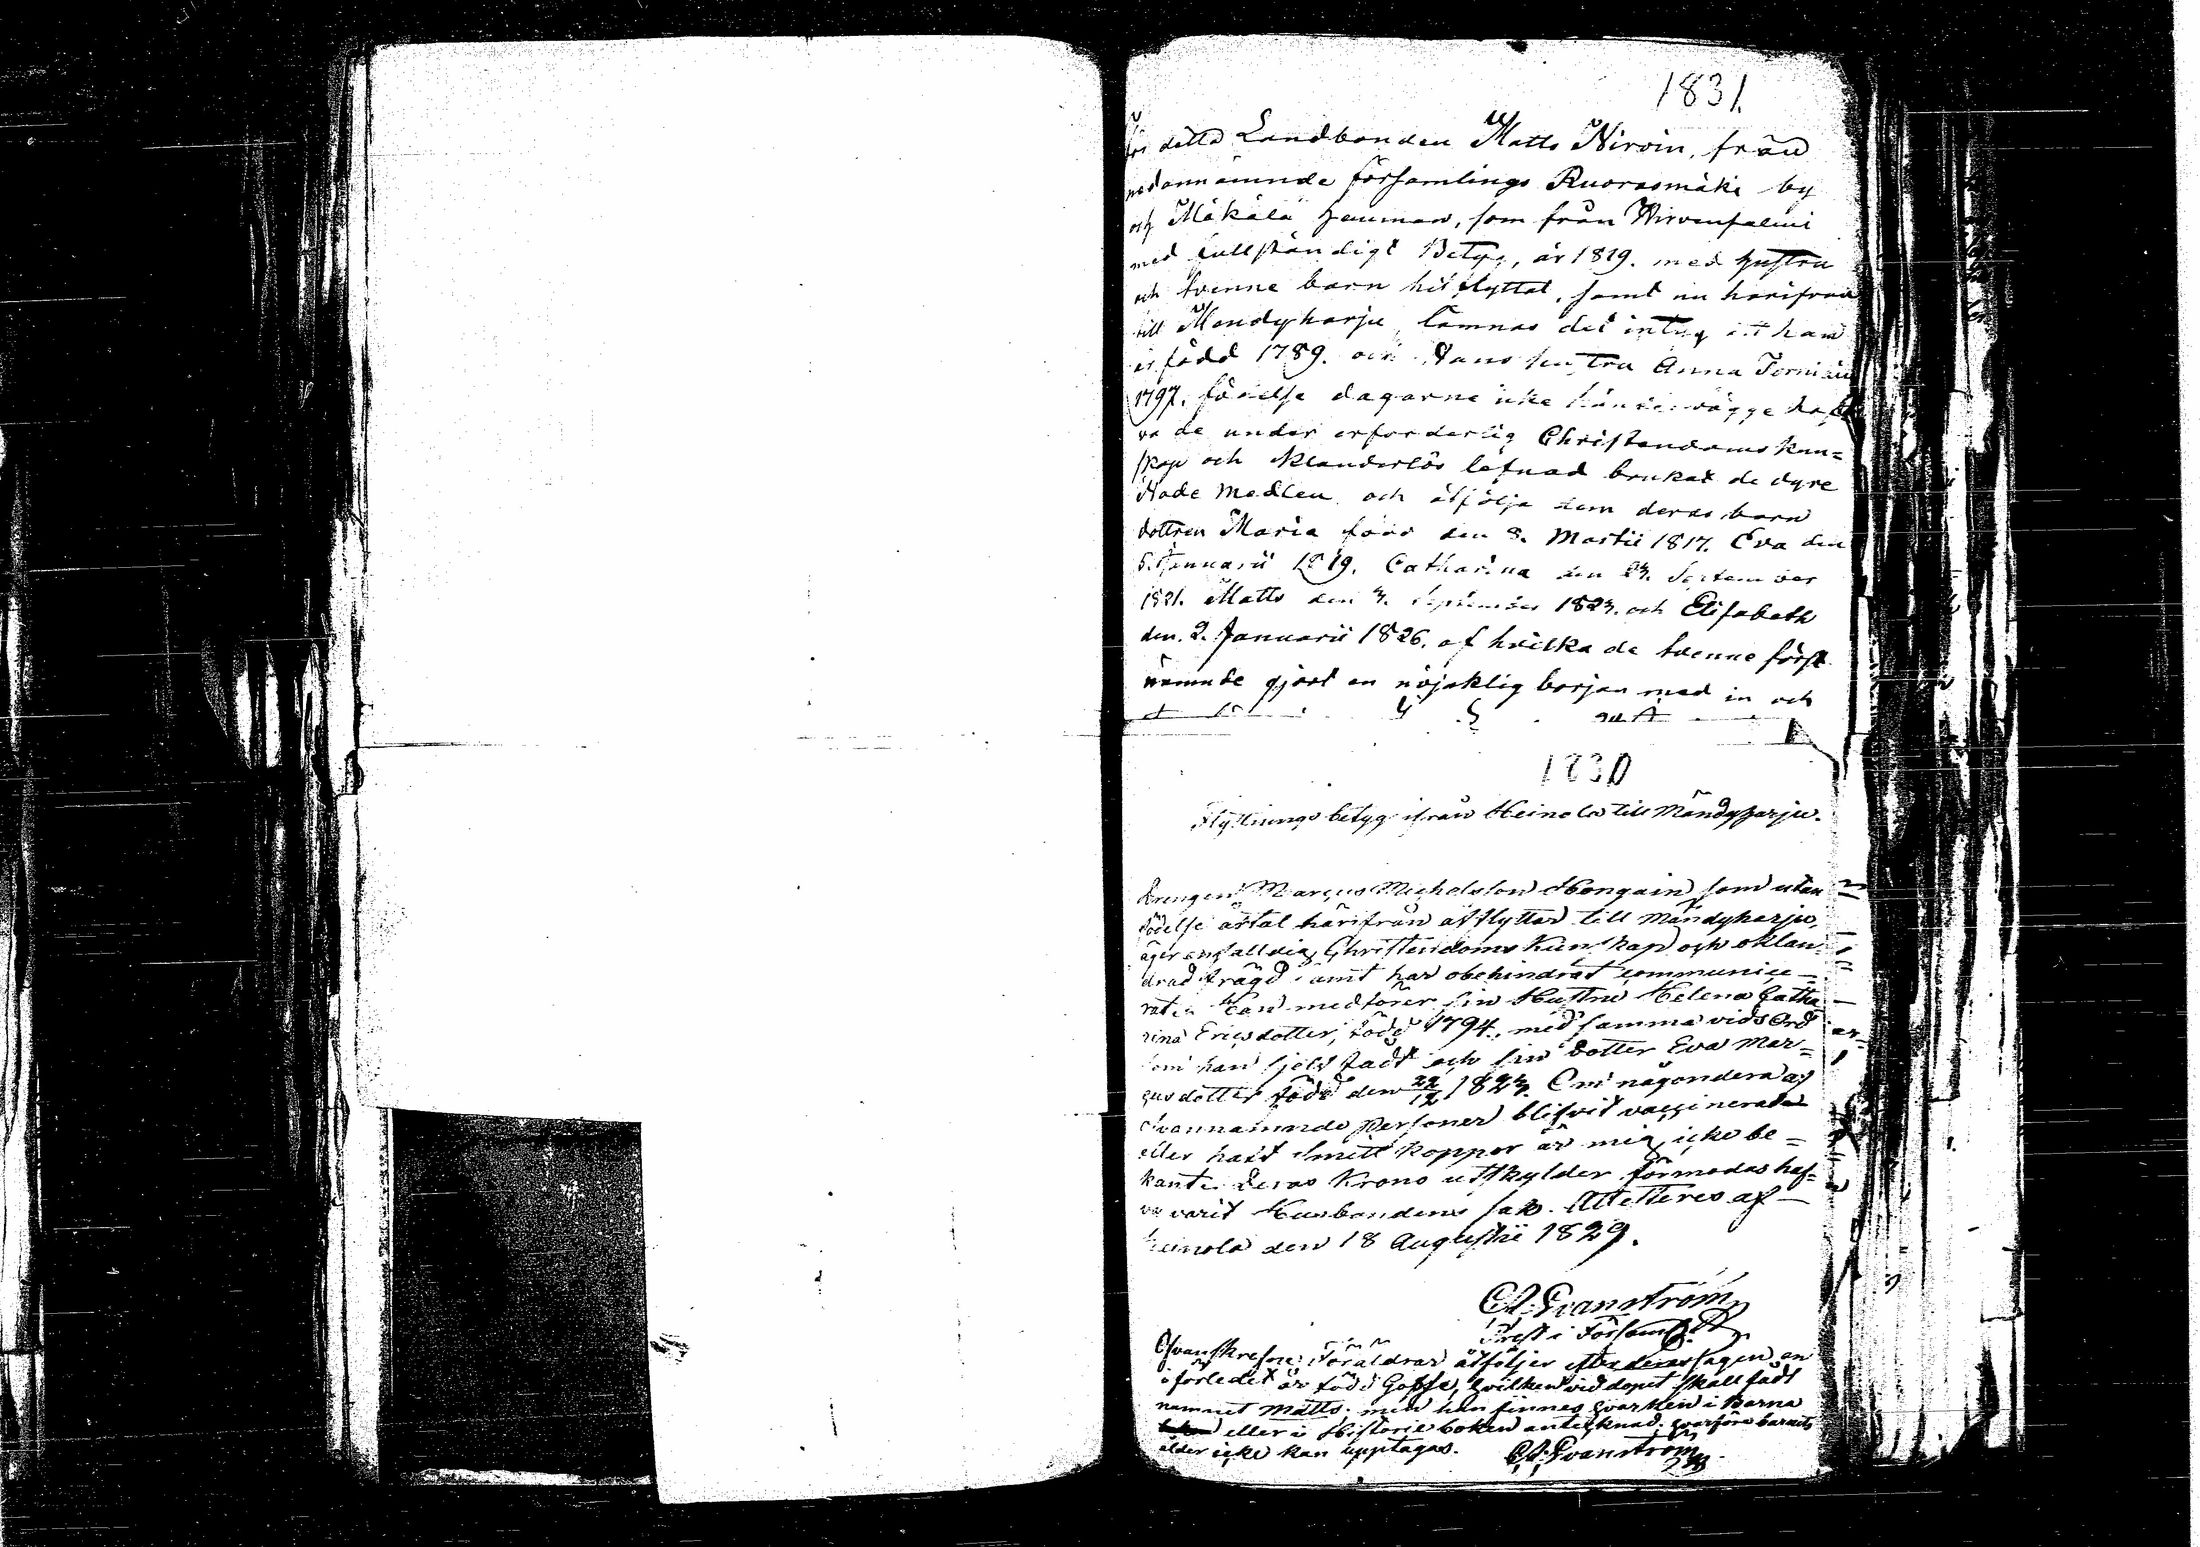 1831.
för detta Landbonden Matts Nirvin, från
nedannämnde församlings Ruorasmäki by
och Mäkälä hemman, som från Hirvensalmi
med fullständigt Betyg, år 1819. med hustru
och tvenne barn hit flyttat, samt nu härifrån
till Mendyharju, lämnas det intyg att han
är född 1789. och Hans hustru Anna Torniain
1797. födelse dagarne icke kände. bägge haf
va de under erforderlig Christendoms kun=
skap och klanderlös lefnad brukat de dyre
Nade Medlen och åtfölja dem deras barn
dottren Maria född den 8. Martii 1817. Eva den
5. Januarii 1819. Catharina den 23. September
1821. Matts den 3. September 1823. och Elisabeth
den. 2. Januarii 1826. af hvilka de tvenne först
nämnde gjort en nöjaktig början med in och
1830
Flyttnings betyg ifrån Heinola till Mändyharju.
Drengen Marcus Michelsson Hongain, som utan
födelse årtal härifrån afflyttar till Mändyharju,
äger enfalldig Christendoms Kunskap och oklan-
drad frägd samt har obehindrat communice-
rat. Han medförer sin Hustru Helena Catha
rina Ericsdotter, född 1794. med samma vidsOrd
som han sjelf fådt och sin dotter Eva Mar=
cusdotter född den 22/12 1823. Om någondera af
ofvannämnde Personer blifvit vaccinerade
eller haft Smitt koppor är mig icke be=
kant. Deras Krono utskylder förmodas haf-
va varit Husbondens sak. Attesteres af-
Heinola den 18 Augustii 1829.
C. A. Evanström
Prest i Församl.
Ofvanskrefne Föräldrar åtföljer efter deras sagen en
i förledet år född Gosse, hvilken vid dopet skall fådt
namnet Matts. men han finnes hvarken i Barna
eller i Historie boken antecknad, hvarföre barnets
ålder icke kan upptagas. C. A. Evanström